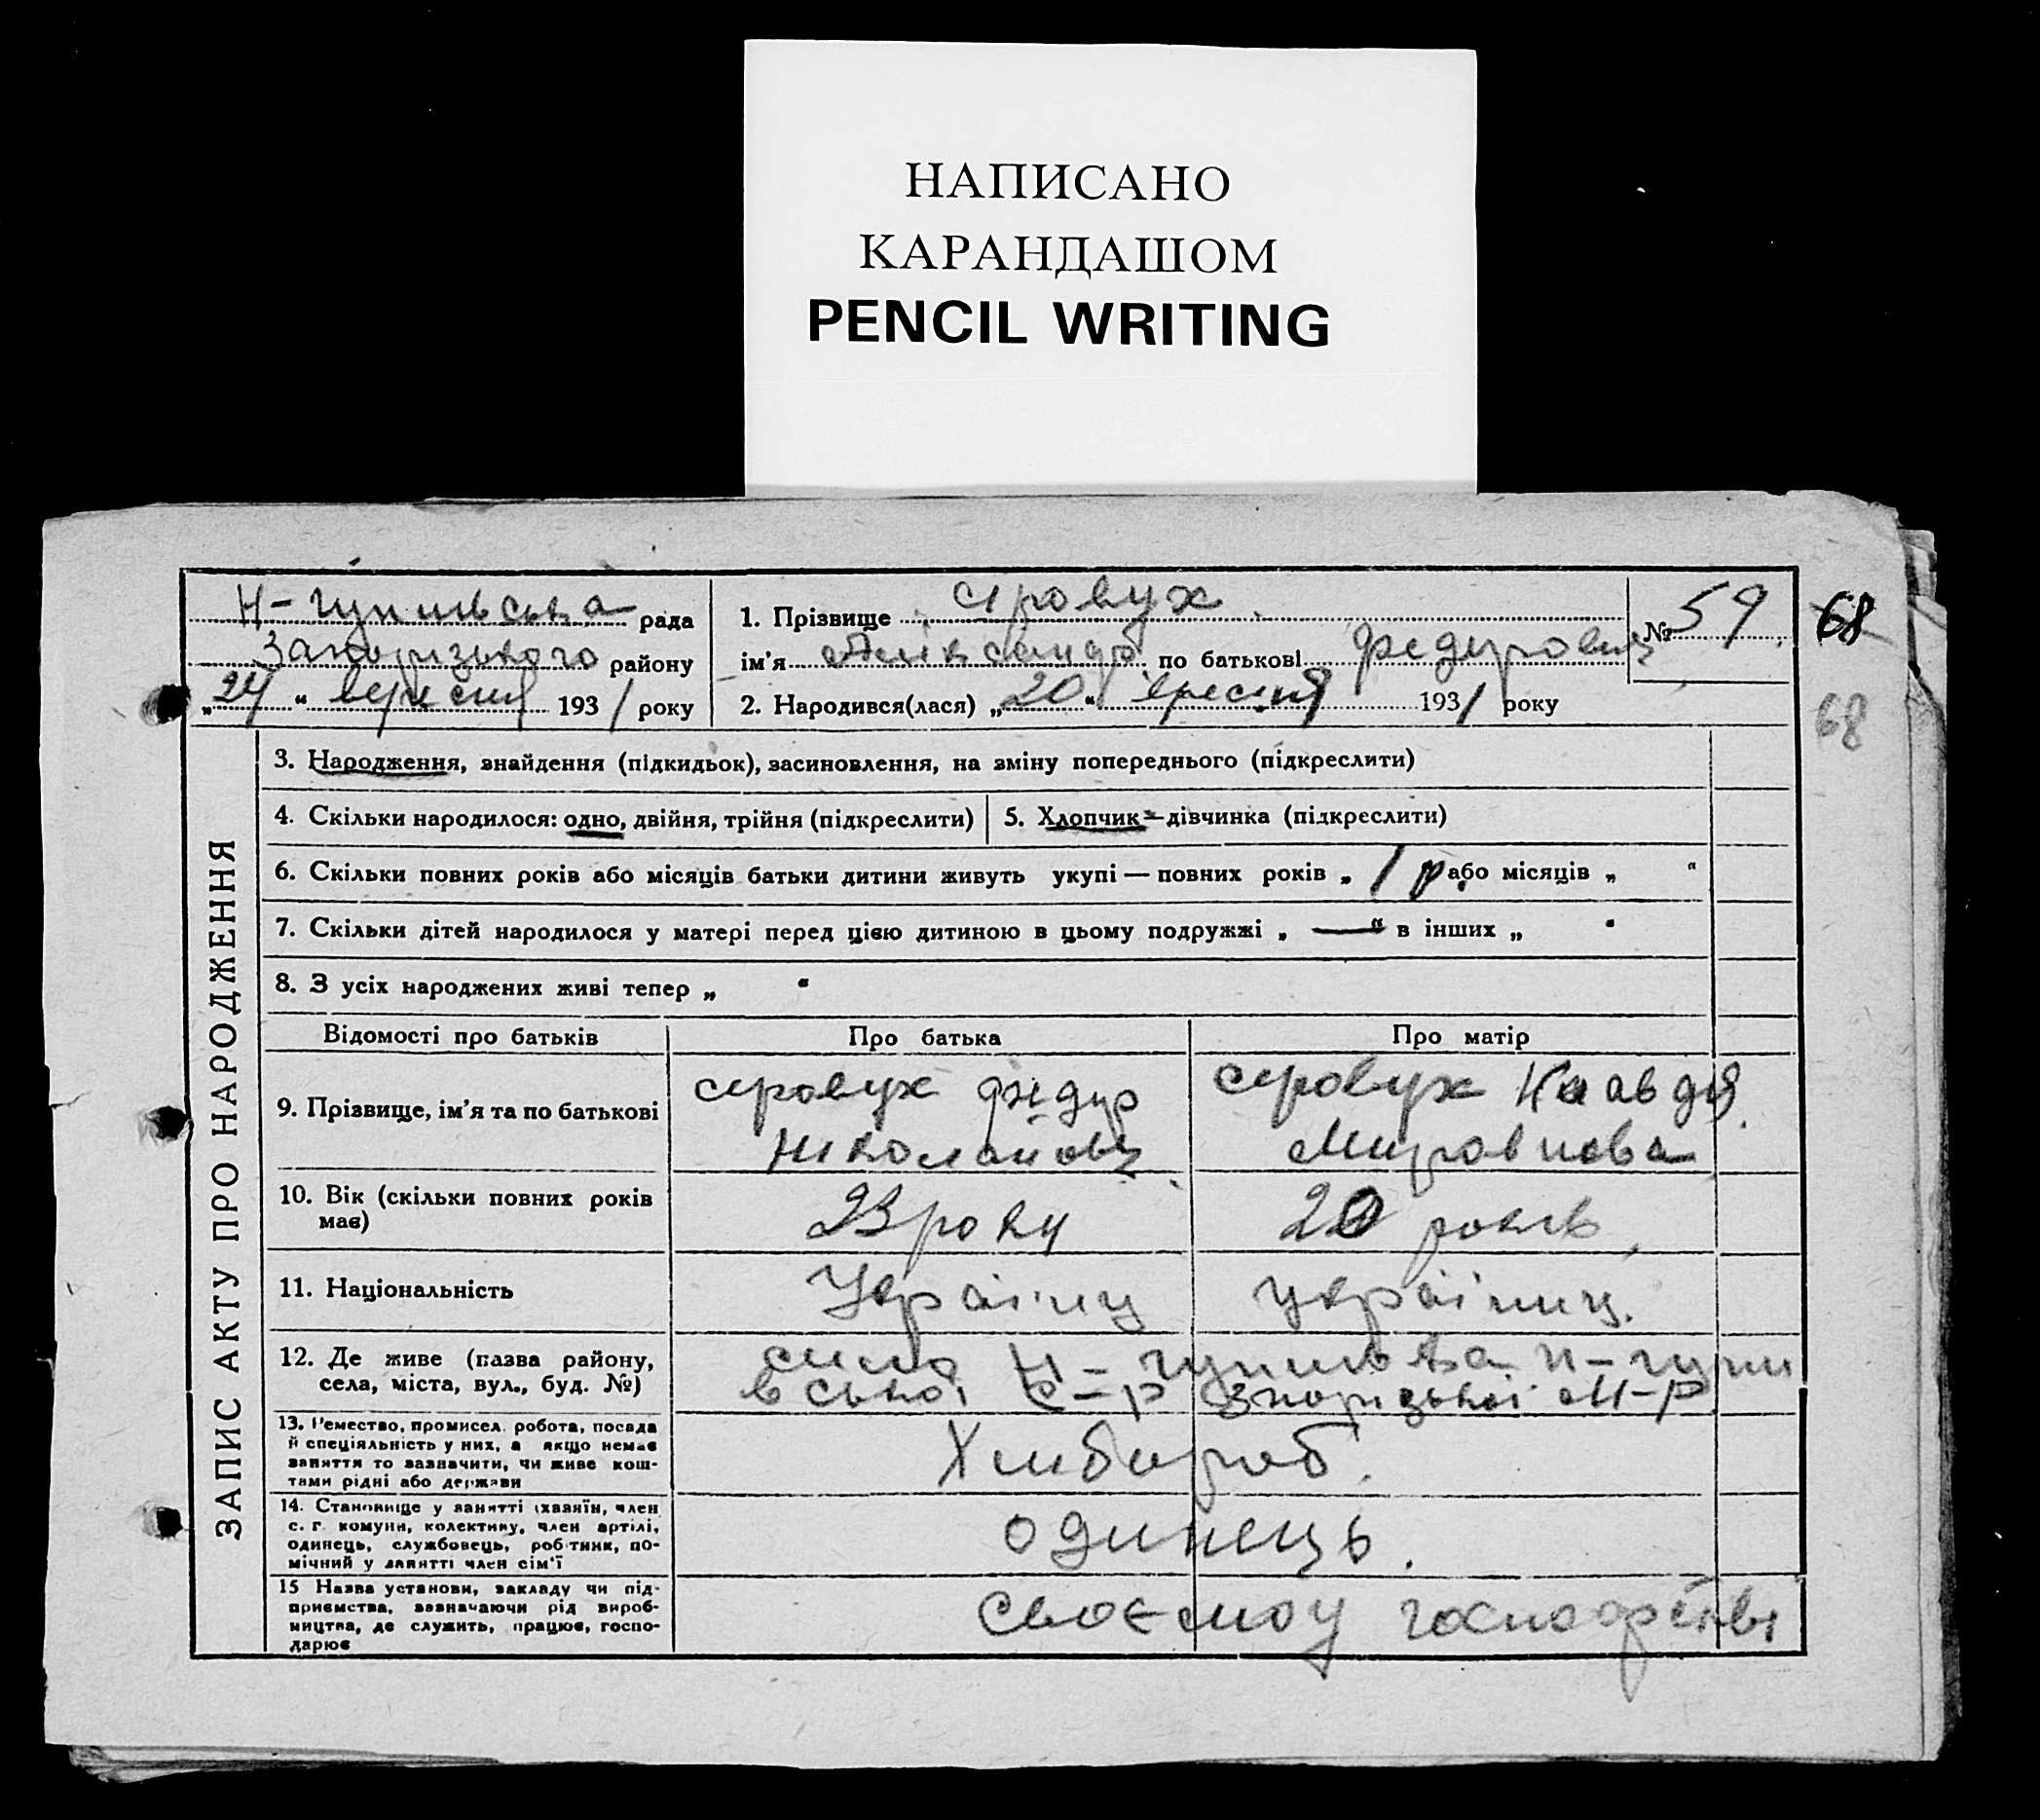 НАПИСАНО
КАРАНДАШОМ
PENCIL WRITING
рада
району
„24“ вересня 1931 року
1. Прізвище Сіровух
ім'я Аліксандр по батькові Федурович
2. Народився(лася) „20“ вересня 1931 року
№ 59
68
68
ЗАПИС АКТУ ПРО НАРОДЖЕННЯ
3. Народження, знайдення (підкидьок), засиновлення, на зміну попереднього (підкреслити)
4. Скільки народилося: одно, двійня, трійня (підкреслити)
5. Хлопчик — дівчинка (підкреслити)
6. Скільки повних років або місяців батьки дитини живуть укупі — повних років „ 1 р або місяців „ “
7. Скільки дітей народилося у матері перед цією дитиною в цьому подружжі „ — “ в інших „ “
8. З усіх народжених живі тепер „ “
Відомості про батьків
Про батька
Про матір
9. Прізвище, ім'я та по батькові
Сіровух Федур
Ніколайов
Сіровух Клавдія
10. Вік (скільки повних років має)
23 року
20 років
11. Національність
Українц
україниц.
12. Де живе (назва району, села, міста, вул., буд. №)
село Н-
вської С-р М-р
13. Ремество, промисел, робота, посада
й спеціяльність у них, а якщо немає
заняття то зазначити, чи живе кош-
тами рідні або держави
Хлібороб.
14. Становище у занятті (хазяїн, член
с. г. комуни, колективу, член артілі,
одинець, службовець, робітник, по-
мічний у занятті член сім'ї
одинець.
15 Назва установи, закладу чи під-
приємства, зазначаючи рід вироб-
ництва, де служить, працює, госпо-
дарює
своємоу госпоарстві